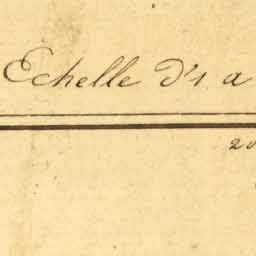 Echelle d'1 a
20